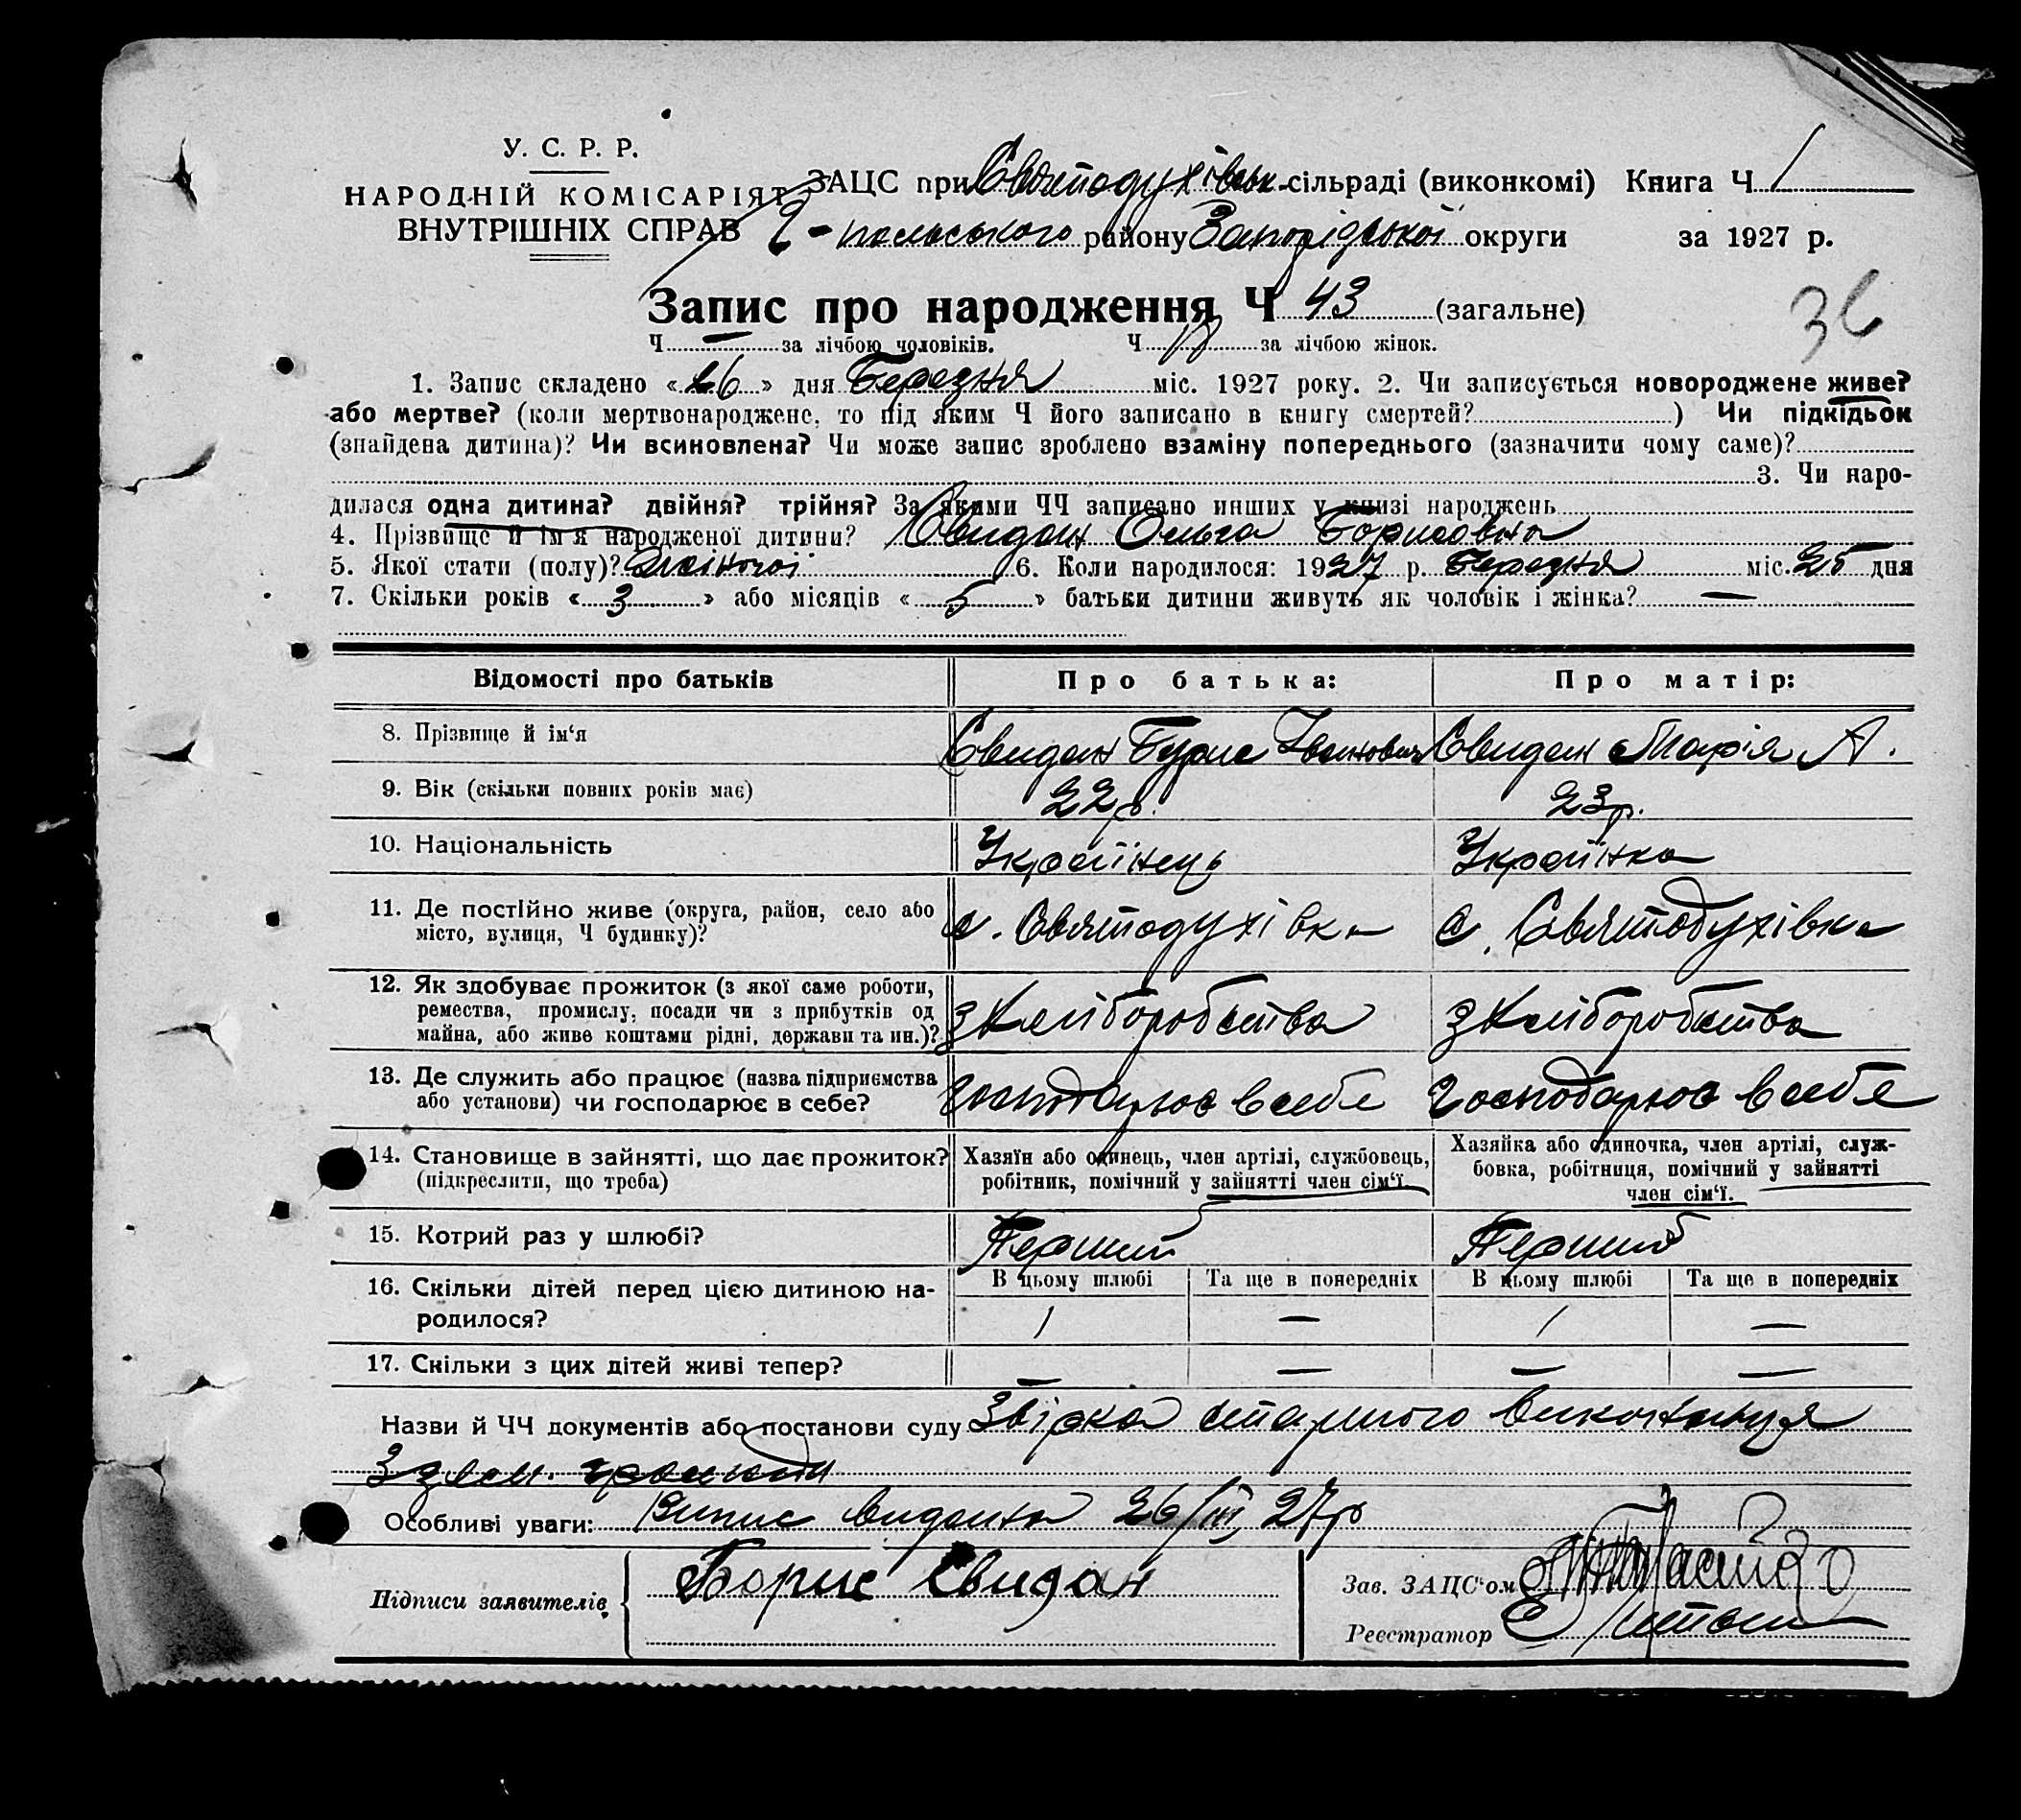 У. С. Р. Р.
НАРОДНІЙ КОМІСАРІЯТ
ВНУТРІШНІХ СПРАВ
ЗАЦС при Святодухівськ. сільраді (виконкомі) Книга Ч 1
польського району Запорідзької округи за 1927 р.
Запис про народження Ч 43 (загальне)
36
Ч — за лічбою чоловіків. Ч за лічбою жінок.
1. Запис складено « 26 » дня Березня міс. 1927 року. 2. Чи записується новороджене живе?
або мертве? (коли мертвонароджене, то під яким Ч його записано в книгу смертей? ) Чи підкідьок
(знайдена дитина)? Чи всиновлена? Чи може запис зроблено взаміну попереднього (зазначити чому саме)?
3. Чи наро-
дилася одна дитина? двійня? трійня? За якими ЧЧ записано инших у книзі народжень
4. Прізвище й ім'я народженої дитини? Свидан Ольга Борисовна
5. Якої стати (полу)? Жіночої 6. Коли народилося: 1927 р. Березня міс. 25 дня
7. Скільки років « 3 » або місяців « 5 » батьки дитини живуть як чоловік і жінка? —
Відомості про батьків Про батька: Про матір:
8. Прізвище й ім'я Свидан Бурис Іванович Свидан Марія А.
9. Вік (скільки повних років має) 22 р. 23 р.
10. Національність Українець Українка
11. Де постійно живе (округа, район, село або
місто, вулиця, Ч будинку)? с. Святодухівка с. Святодухівка
12. Як здобуває прожиток (з якої саме роботи,
ремества, промислу, посади чи з прибутків од
майна, або живе коштами рідні, держави та ин.)? З Хліборобства З Хліборобства
13. Де служить або працює (назва підприємства
або установи) чи господарює в себе? Господарює в себе Господарює в себе
14. Становище в зайнятті, що дає прожиток?
(підкреслити, що треба)
Хазяїн або одинець, член артілі, службовець,
робітник, помічний у зайнятті член сім'ї.
Хазяйка або одиночка, член артілі, служ-
бовка, робітниця, помічний у зайнятті
член сім'ї.
15. Котрий раз у шлюбі? Перший Перший
В цьому шлюбі Та ще в попередніх В цьому шлюбі Та ще в попередніх
16. Скільки дітей перед цією дитиною на-
родилося? 1 — 1 —
17. Скільки з цих дітей живі тепер? — — — —
Назви й ЧЧ документів або постанови суду Звірка
Зем. громади
Особливі уваги: Випис видана 26/III 27р
Підписи заявителів Борис Свидан
Зав. ЗАЦС'ом
Реєстратор